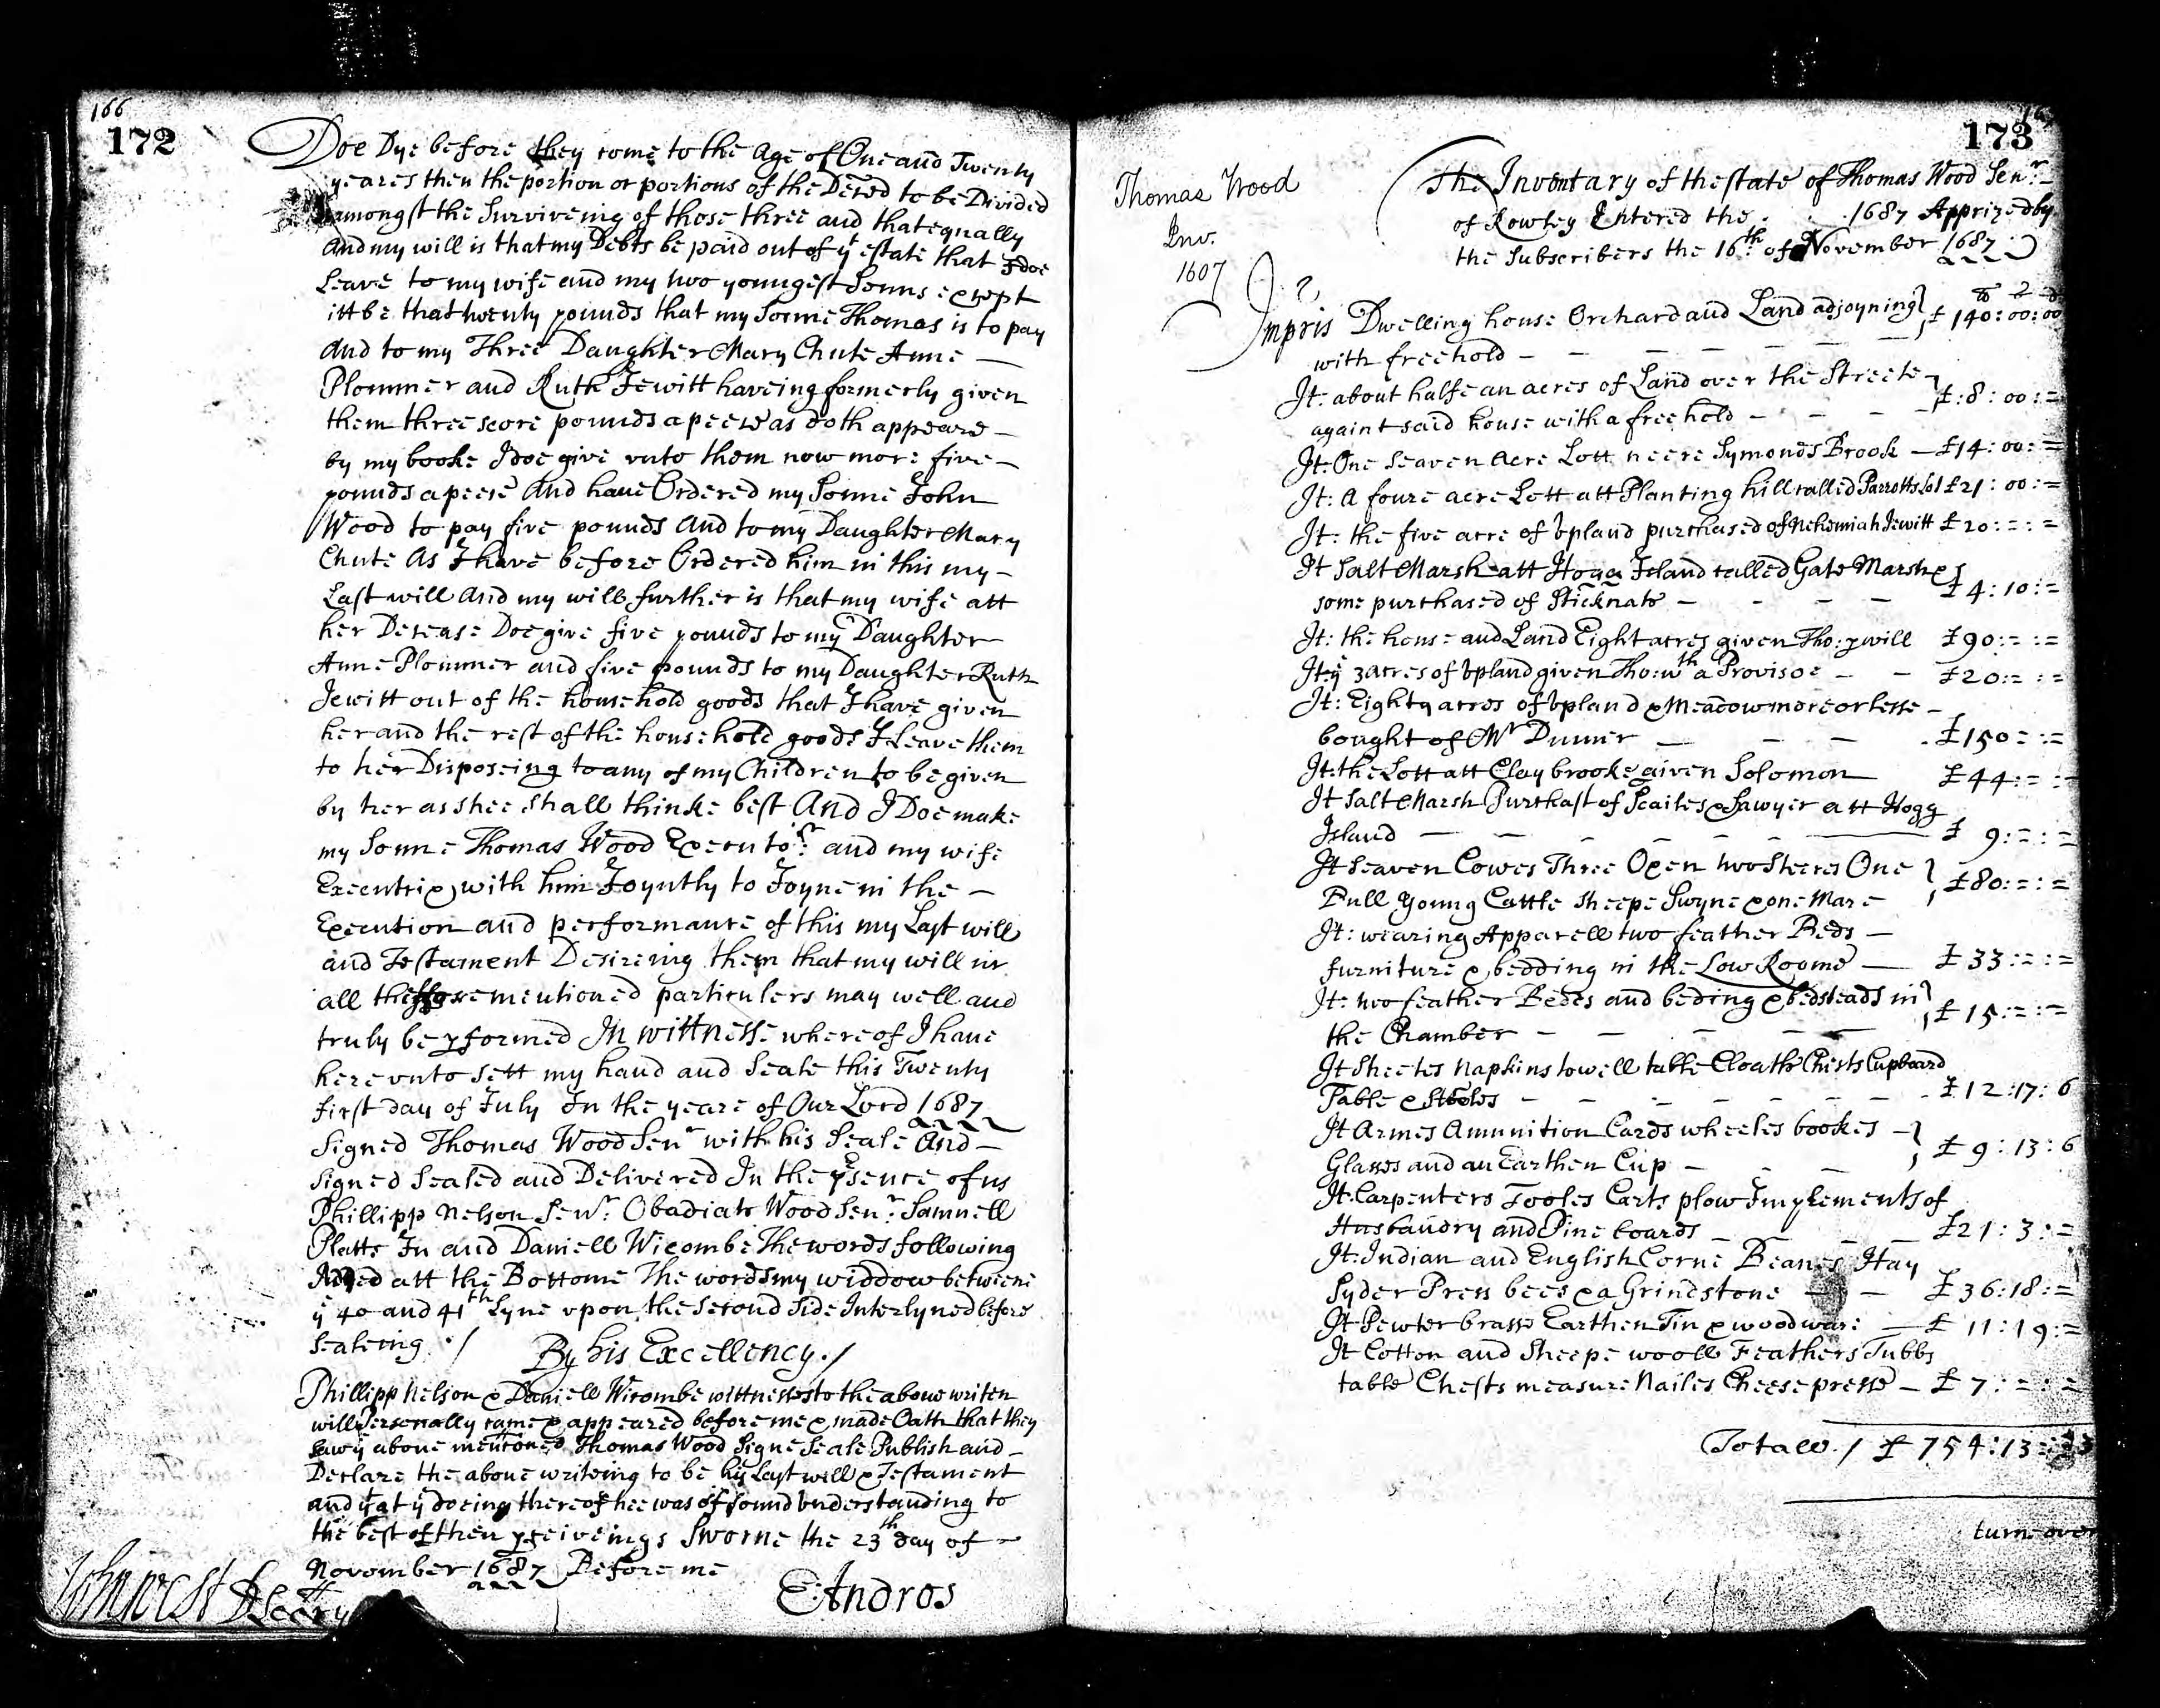 166
172
Doe Dye before they come to the Age of One and Twenty
yeares then the portion or portions of the Deced to be Divided
amongst the Surviveing of those three and that equally
And my will is that my Debts be paid out of yt estate that I doe
Leave to my wife and my two youngest Sonns except
itt be that twenty pounds that my Sonne Thomas is to pay
And to my Three Daughter Mary Chute Anne —
Plommer and Ruth Jewitt haveing formerly given
them three score pounds a peece as doth appeare —
by my booke I doe give vnto them now more five —
pounds a peece And haue Ordered my Sonne John
Wood to pay five pounds And to my Daughter Mary
Chute As I have before Ordered him in this my —
Last will And my will further is that my wife att
her Decease Doe give five pounds to my Daughter
Anne Plommer and five pounds to my Daughter Ruth
Jewitt out of the household goods that I have given
her and the rest of the household goods I Leave them
to her Disposeing to any of my Children to be given
by her as shee shall thinke best And I Doe make
my Sonne Thomas Wood Executor: and my wife
Executrix with him Joyntly to Joyne in the —
Execution and performance of this my Last will
and Testament Desireing them that my will in
all the forementioned particulers may well and
truly be pformed In wittnesse whereof I haue
herevnto sett my hand and Seale this Twenty
first day of July In the yeare of Our Lord 1687
Signed Thomas Wood Senr with his Seale And —
Signed Sealed and Delivered In the psence of us
Phillipp Nelson Senr: Obadiah Wood Senr: Samuell
Platts Ju and Daniell Wicombe The words following
Aded att the Bottome The words my widdow betweene
ye 40 and 41th Lyne vpon the Second Side Interlyned before
Sealeing ./ By his Excellency./
Phillipp Nelson & Daniell Wicombe wittnesses to the aboue writen
will Personally came & appeared before me & made Oath that they
saw ye aboue mentioned Thomas Wood Signe Seale Publish and —
Declare the aboue writeing to be his Last will & Testament
and yt at ye doeing thereof hee was of sound vnderstanding to
the best of then pceiveings Sworne the 23th day of
November 1687 Before me
John West Secry
E Andros
173
Thomas Wood
Inv.
1607
The Inventary of the state of Thomas Wood Senr:
of Rowley Entered the . . 1687 Apprized by
the Subscribers the 16th of November 1687
Impris Dwelling house Orchard and Land adjoyning £ 140:00:00
with freehold — — — — — — —
It: about halfe an acres of Land over the Streete £:8:00:=
againt said house with a free hold — — — —
It: One Seaven Acre Lott neere Symonds Brook — £14:00:=
It: A foure acre Lott att Planting hill called Parrotts Lot £21:00:=
It: the five acre of Vpland purchased of Nehemiah Jewitt £20:=:=
It Salt Marsh att Hogg Island called Gate Marsh &
some purchased of Sticknato — — — — £4:10:=
It: the house and Land Eight acres given Tho: p will £90:=:=
It ye 3 acres of Vpland given Tho: wth a Provisoe — — £20:=:=
It: Eighty acres of Vpland & Meadow more or lesse —
bought of Mr Dumer — — — £150=:=
It: the Lott att Claybrooke given Solomon £44:=:=
It Salt Marsh Purchast of Scailes & Sawyer att Hogg
Island — — — — — — £ 9:=:=
It Seaven Cowes Three Oxen two Steeres One
Bull young Cattle Sheepe Swyne & one Mare £80:=:=
It: wearing Apparell two feather Beds —
furniture & bedding in the Low Roome — £33:=:=
It: two feather Bedes and beding & bedsteads in
the Chamber — — — — £15:=:=
It Sheetes Napkins towell table Cloaths Chests Cupboard
Table & Stooles — — — — — — — £12:17:6
It Armes Amunition Cards wheeles bookes —
Glasses and an Earthen Cup — — — £9:13:6
It Carpenters Tooles Carts plow Implements of
Husbandry and Pine boards — — — £21:3:=
It: Indian and English Corne Beanes Hay
Syder Press bees & a Grindstone — — £36:18:=
It Pewter brasse Earthen Tin & woodware — £ 11:19:=
It Cotton and Sheepe wooll Feathers Tubbs
table Chests measure Nailes Cheese presse — £7:=:=
Totall ./ £ 754:13
turne over